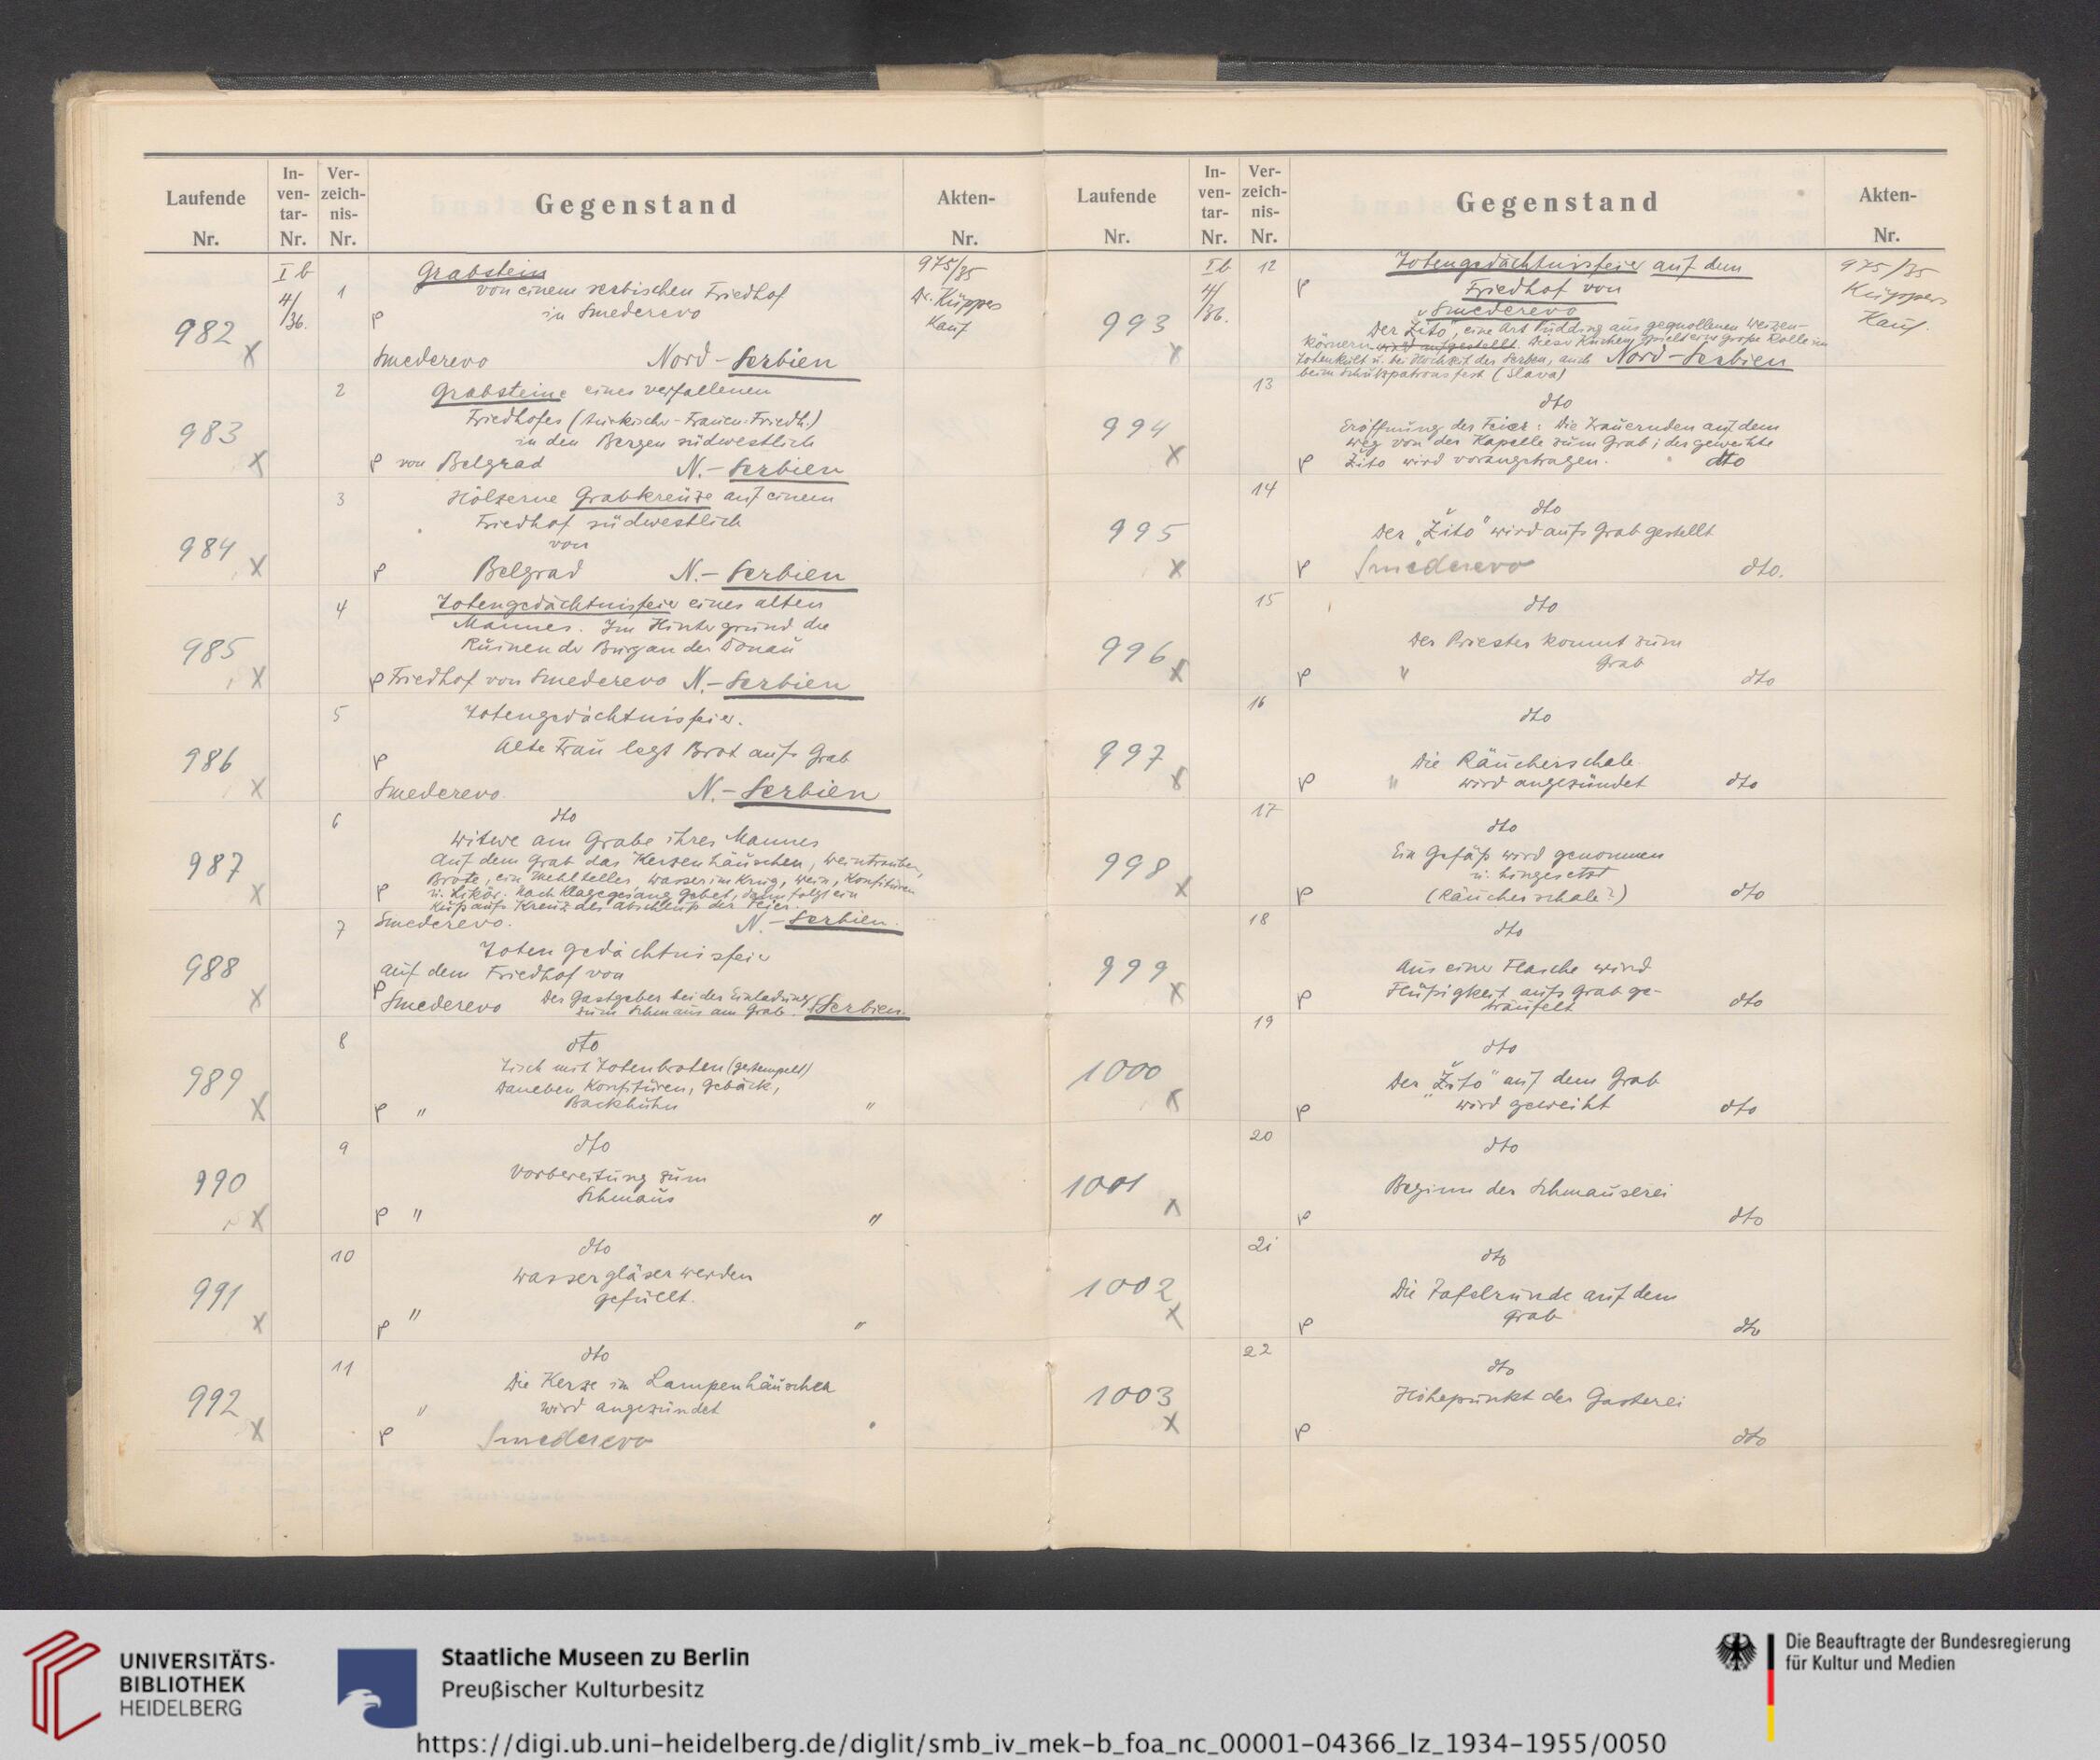 Laufende Nr.
In-ven-tar-Nr.
Ver-zeich-nis-Nr.
Gegenstand
Akten-Nr.
982 X
I b 4/ /36.
1
Grabstein
von einem serbischen Friedhof
in Smederevo
P
Smederevo Nord-Serbien
975/35
Dr. Küppers
Kauf
983 X
2
Grabsteine eines verfallenen
Friedhofes (türkischer-Frauen-Friedh.)
in den Bergen südwestlich
P von Belgrad N.-Serbien
984 X
3
Hölzerne Grabkreuze auf einem
Friedhof südwestlich
von
P Belgrad N.-Serbien
985 X
4
Totengedächtnisfeier eines alten
Mannes. Im Hintergrund die
Ruinen der Burg an der Donau
P Friedhof von Smederevo N.-Serbien
986 X
5
Totengedächtnisfeier.
Alte Frau legt Brot aufs Grab
P
Smederevo N.-Serbien
987 X
6
dto
Witwe am Grabe ihres Mannes
Auf dem Grab das Kerzenhäuschen, Weintrauben,
Brote, ein Mehlteller, Wasser im Krug, Wein, Konfitüren
P u. Likör. Nach Klagegesang, Gebet, dann folgt ein
Kuß aufs Kreuz der Abschluß der Feier.
Smederevo. N.-Serbien.
988 X
7
Totengedächtnisfeier
auf dem Friedhof von
P
Smederevo Der Gastgeber bei der Einladung
zum Schmaus am Grab. Serbien
989 X
8
dto
Tisch mit Totenbroten (gestempelt)
Daneben Konfitüren, Gebäck,
Backhuhn
P " "
990 X
9
dto
Vorbereitung zum
Schmaus
P " "
991 X
10
dto
Wassergläser werden
gefüllt.
P " "
992 X
11
dto
Die Kerze im Lampenhäuschen
" wird angezündet
P Smederevo
Laufende Nr.
In-ven-tar-Nr.
Ver-zeich-nis-Nr.
Gegenstand
Akten-Nr.
993 X
I b 4/ /36.
12
Totengedächtnisfeier auf dem
P Friedhof von
Smederevo
Der "Žito", eine Art Pudding aus gequollenen Weizen-
körnern wird aufgestellt. Dieser Kuchen spielt eine große Rolle im
Totenkult u. bei Hochzeit der Serben, auch Nord-Serbien
beim Schutzpatronsfest (Slava)
975/35
Küppers
Kauf.
994 X
13
dto
Eröffnung der Feier: Die Trauernden auf dem
Weg von der Kapelle zum Grab; der geweihte
P Žito wird vorangetragen. dto
995 X
14
dto
Der "Žito" wird aufs Grab gestellt
P Smederevo dto.
996 X
15
dto
Der Priester kommt zum
Grab
P " dto
997 X
16
dto
Die Räucherschale
P " wird angezündet dto
998 X
17
dto
Ein Gefäß wird genommen
u. hingesetzt
P (Räucherschale?) dto
999 X
18
dto
Aus einer Flasche wird
P Flüßigkeit aufs Grab ge-
träufelt dto
1000 X
19
dto
Der "Žito" auf dem Grab
P wird geweiht dto
1001 X
20
dto
Beginn der Schmauserei
P dto
1002 X
21
dto
Die Tafelrunde auf dem
Grab
P dto
1003 X
22
dto
Höhepunkt der Gasterei
P dto
UNIVERSITÄTS-
BIBLIOTHEK
HEIDELBERG
Staatliche Museen zu Berlin
Preußischer Kulturbesitz
Die Beauftragte der Bundesregierung
für Kultur und Medien
https://digi.ub.uni-heidelberg.de/diglit/smb_iv_mek-b_foa_nc_00001-04366_lz_1934-1955/0050